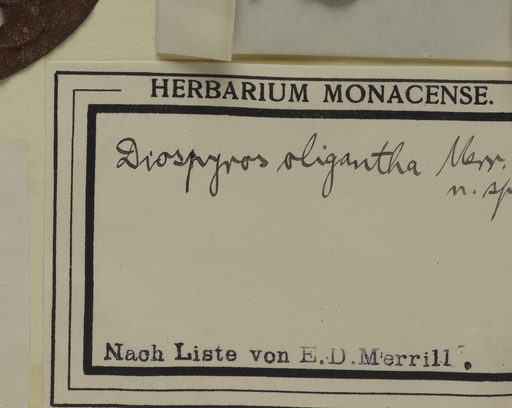 HERBARIUM MONACENSE.
Diospyros oligantha Merr.
n. sp
Nach Liste von E.D.Merrill.